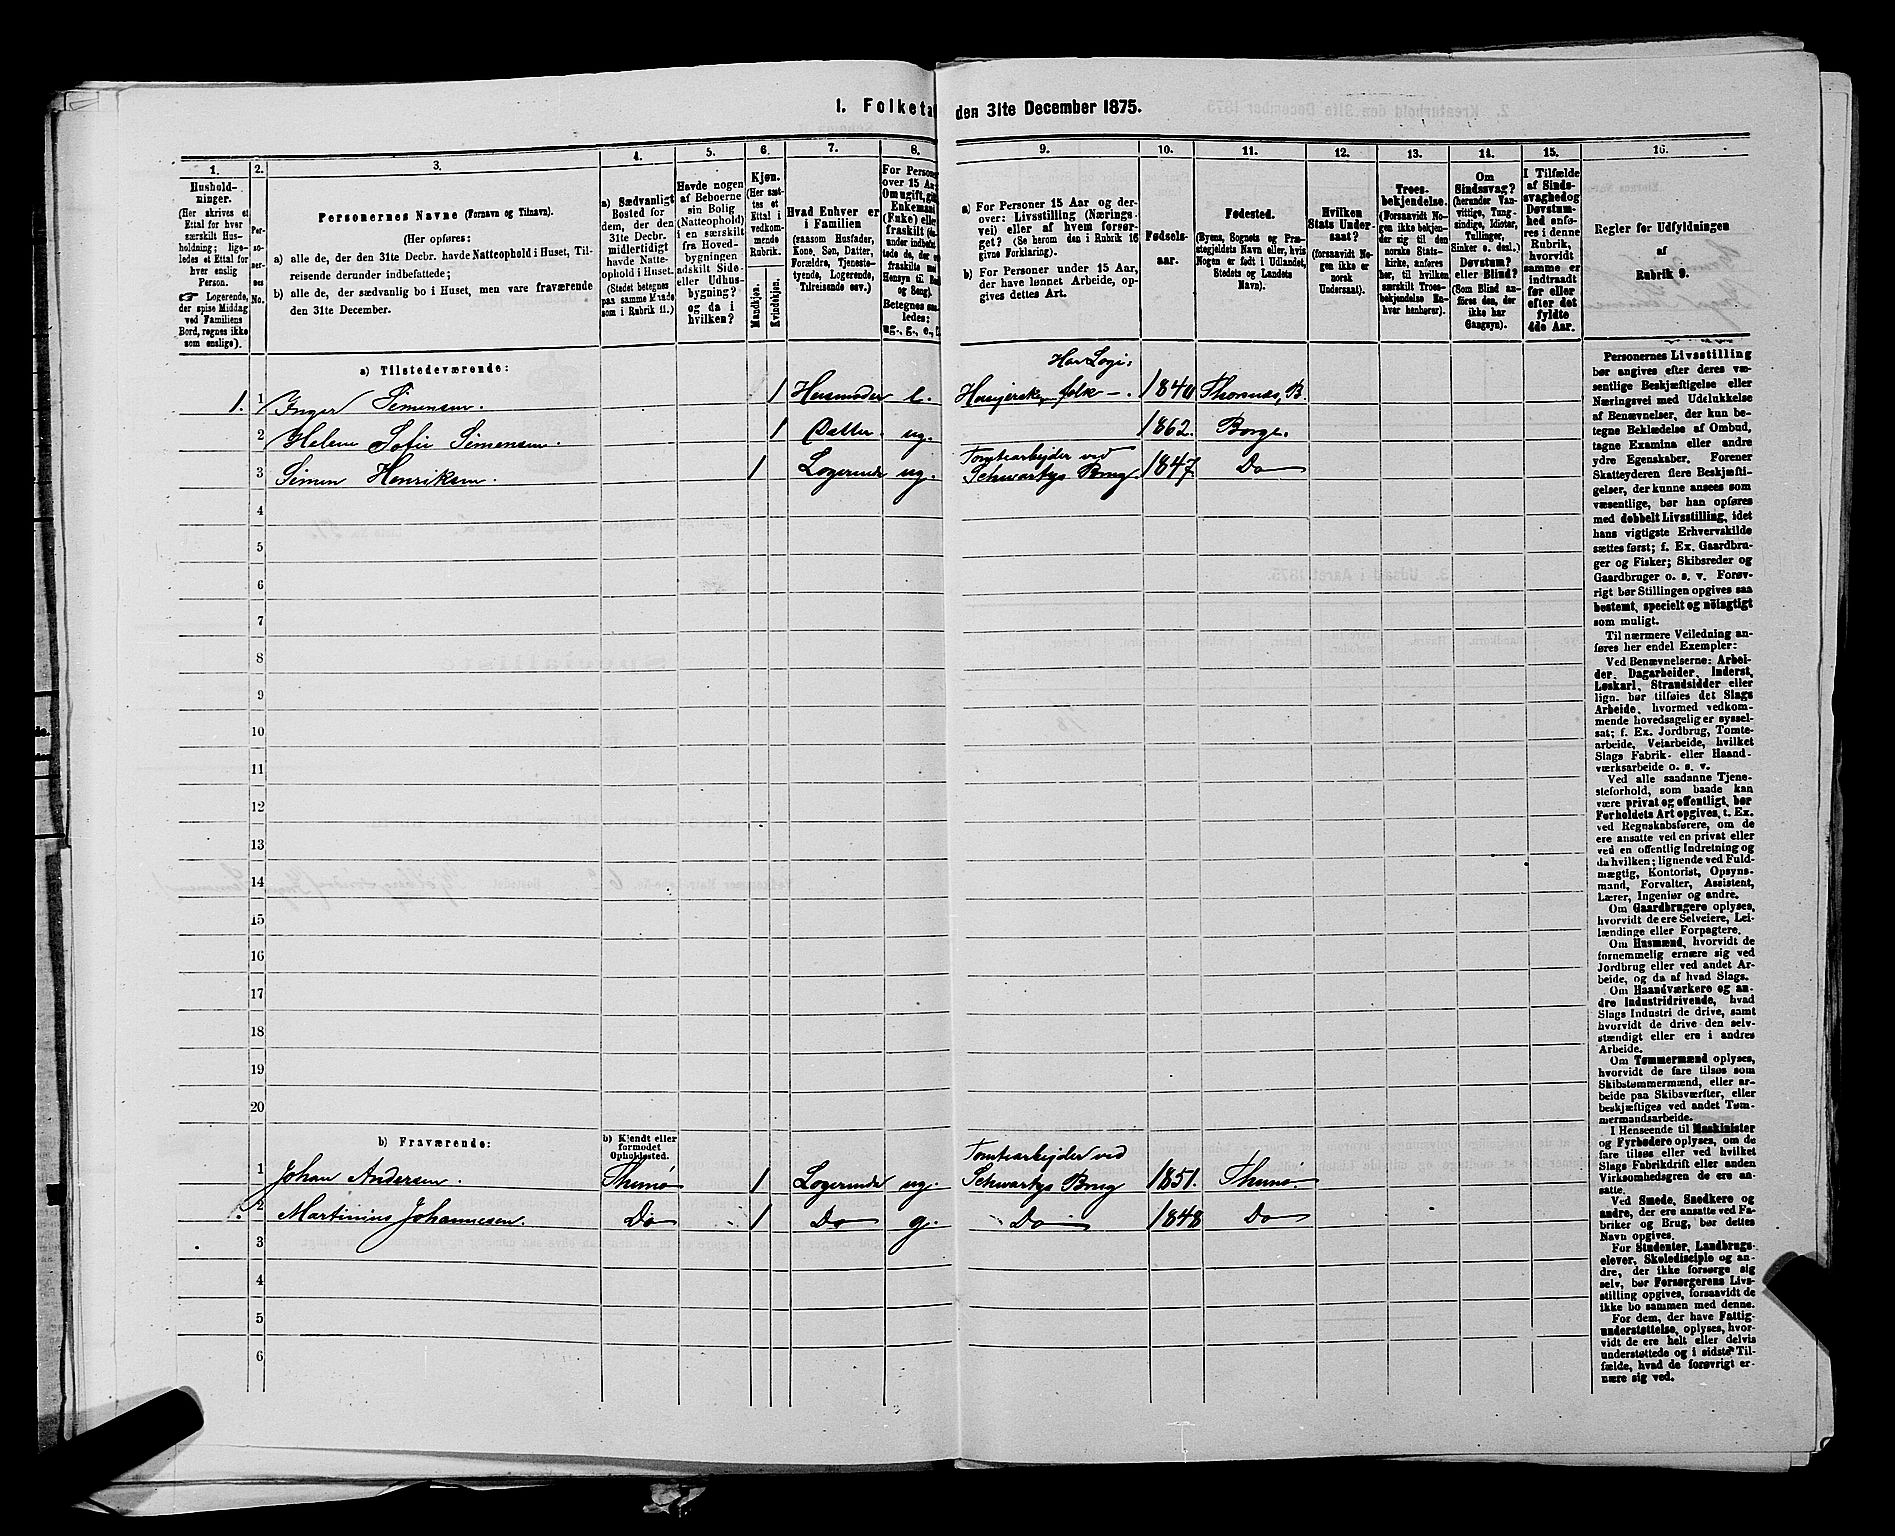 1. Folketal den 31te December 1875.
1.
Hushold-
ninger.
(Her skrives et
Ettal for hver
særskilt Hus-
holdning; lige-
ledes et Ettal for
hver enslig
Person.
☞ Logerende,
der spise Middag
ved Familiens
Bord, regnes ikke
som enslige).
2.
Per-
so-
ner-
nes
No.
3.
Personernes Navne (Fornavn og Tilnavn).
(Her opføres:
a) alle de, der den 31te Decbr. havde Natteophold i Huset, Til-
reisende derunder indbefattede;
b) alle de, der sædvanlig bo i Huset, men vare fraværende
den 31te December.
4.
a) Sædvanligt
Bosted for
dem, der den
31te Decbr.
midlertidigt
havde Natte-
ophold i Huset.
(Stedet betegnes
paa samme Maade
som i Rubrik 11.)
5.
Havde nogen
af Beboerne
sin Bolig
(Natteophold)
i en særskilt
fra Hoved-
bygningen
adskilt Side-
eller Udhus-
bygning?
og da i
hvilken?
6.
Kjøn.
(Her sæt-
tes et
Ettal i
vedkom-
mende
Rubrik.
Mandkjøn.
Kvindekjøn.
7.
Hvad Enhver er
i Familien
(raasom Husfader,
Kone, Søn, Datter,
Forældre, Tjeneste-
tyende, Logerende,
Tilreisende osv.)
8.
For Person
over 15 Aar
Om ugift, gift
Enkemand
(Fuke) eller
fraskilt
Betegnes saa-
ledes:
ug., g., e.,
9.
a) For Personer 15 Aar og der-
over: Livsstilling (Nærings-
vei) eller af hvem forsør-
get? (Se herom den i Rubrik 16
givne Forklaring).
b) For Personer under 15 Aar,
der have lønnet Arbeide, op-
gives dettes Art.
10.
Fødsels-
aar.
11.
Fødested.
(Byens, Sognets og Præ-
stegjeldets Navn eller, hvis
Nogen er født i Udlandet,
Stedets og Landets
Navn).
12.
Hvilken
Stats Under-
saat?
(forsaavidt No-
gen ikke er
norsk
Undersaat).
13.
Troes-
bekjendelse.
(Forsaavidt No-
gen ikke bekjen-
der sig til den
norske Stats-
kirke, anføres
her, til hvilken
særskilt Troes-
bekjendelse En-
hver henhører).
14.
Om
Sindssvag?
(herunder Van-
vittige, Tung-
sindige, Idioter,
Tullinger,
Sinker o. desl.)
Døvstum?
eller Blind?
(Som Blind an-
føres den, der
ikke har
Gangsyn).
15.
I Tilfælde
af Sinds-
svaghed og
Døvstum-
hed anfø-
res i denne
Rubrik,
hvorvidt
samme er
indtraadt
før eller
efter det
fyldte
4de Aar.
16.
Regler for Udfyldningen
af
Rubrik 9.
a) Tilstedeværende:
Har Logi-
1. 1 Inger Simensen. 1 Husmoder e. Husejerske, folk —. 1840 Thorsnes, B.
2 Helene Sofie Simensen. 1 Datter. ug. 1862. Borge.
Tomtearbejder ved
3 Simen Henriksen. 1 Logerende ug. Schwartys Brug. 1847. Do
4
5
6
7
8
9
10
11
12
13
14
15
16
17
18
19
20
b) Fraværende:
b) Kjendt eller
formodet
Opholdssted.
Tomtearbejder ved
1 Johan Andersen. Thunø 1 Logerende ug. Schwartys Brug 1851. Thunø.
2 Martinius Johannesen. Do 1 Do g. Do 1848 Do
3
4
5
6
Personernes Livsstilling
bør angives efter deres væ-
sentlige Beskjæftigelse eller
Næringsvei med Udelukkelse
af Benævnelser, der kun be-
tegne Beklædelse af Ombud,
tagne Examina eller andre
ydre Egenskaber. Forener
Skatteyderen flere Beskjæfti-
gelser, der kunne ansees som
væsentlige, bør han opføres
med dobbelt Livsstilling, idet
hans vigtigste Erhvervskilde
sættes først; f. Ex. Gaardbru-
ger og Fisker; Skibsreder og
Gaardbruger o. s. v. Forøv-
rigt bør Stillingen opgives saa
bestemt, specielt og nöiagtigt
som muligt.
Til nærmere Veiledning an-
føres her endel Exempler:
Ved Benævnelserne: Arbei-
der, Dagarbeider, Inderst,
Løskarl, Strandsidder eller
lign. bør tilføies det Slags
Arbeide, hvormed vedkom-
mende hovedsagelig er syssel-
sat; f. Ex. Jordbrug, Tomte-
arbeide, Veiarbeide, hvilket
Slags Fabrik- eller Haand-
værksarbeide o. s. v.
Ved alle saadanne Tjene-
steforhold, som baade kan
være privat og offentligt, bør
Forholdets Art opgives, t. Ex.
ved Regnskabsførere, om de
ere ansatte ved en privat eller
ved en offentlig Indretning og
da hvilken; lignende ved Fuld-
mægtig, Kontorist, Opsyns-
mand, Forvalter, Assistent,
Lærer, Ingeniør og andre.
Om Gaardbrugere oplyses,
hvorvidt de ere Selveiere, Lei-
lændinge eller Forpagtere.
Om Husmænd, hvorvidt de
fornemmelig ernære sig ved
Jordbrug eller ved andet Ar-
beide, og da af hvad Slags.
Om Haandværkere og an-
dre Industridrivende, hvad
Slags Industri de drive, samt
hvorvidt de drive den selv-
stændigt eller ere i andres
Arbeide.
Om Tømmermænd oplyses,
hvorvidt de fare tilsøs som
Skibstømmermænd, eller ar-
beide paa Skibsværfter, eller
beskjæftiges ved andet Tøm-
mermandsarbeide.
I Henseende til Maskinister
og Fyrbødere oplyses, om de
fare tilsøs eller ved hvilket
Slags Fabrikdrift eller anden
Virksomhedsgren de ere an-
satte.
Ved Smede, Snedkere og
andre, der ere ansatte ved Fa-
briker og Brug, bør dettes
Navn opgives.
For Studenter, Landbrugs-
elever, Skoledisciple og an-
dre, der ikke forsørge sig
selv, bør Forsørgerens Livs-
stilling opgives, forsaavidt de
ikke bo sammen med denne.
For dem, der have Fattig-
understøttelse, oplyses, hvor-
vidt de ere helt eller delvis
understøttede og i sidste Til-
fælde, hvad de forøvrigt er-
nære sig ved.